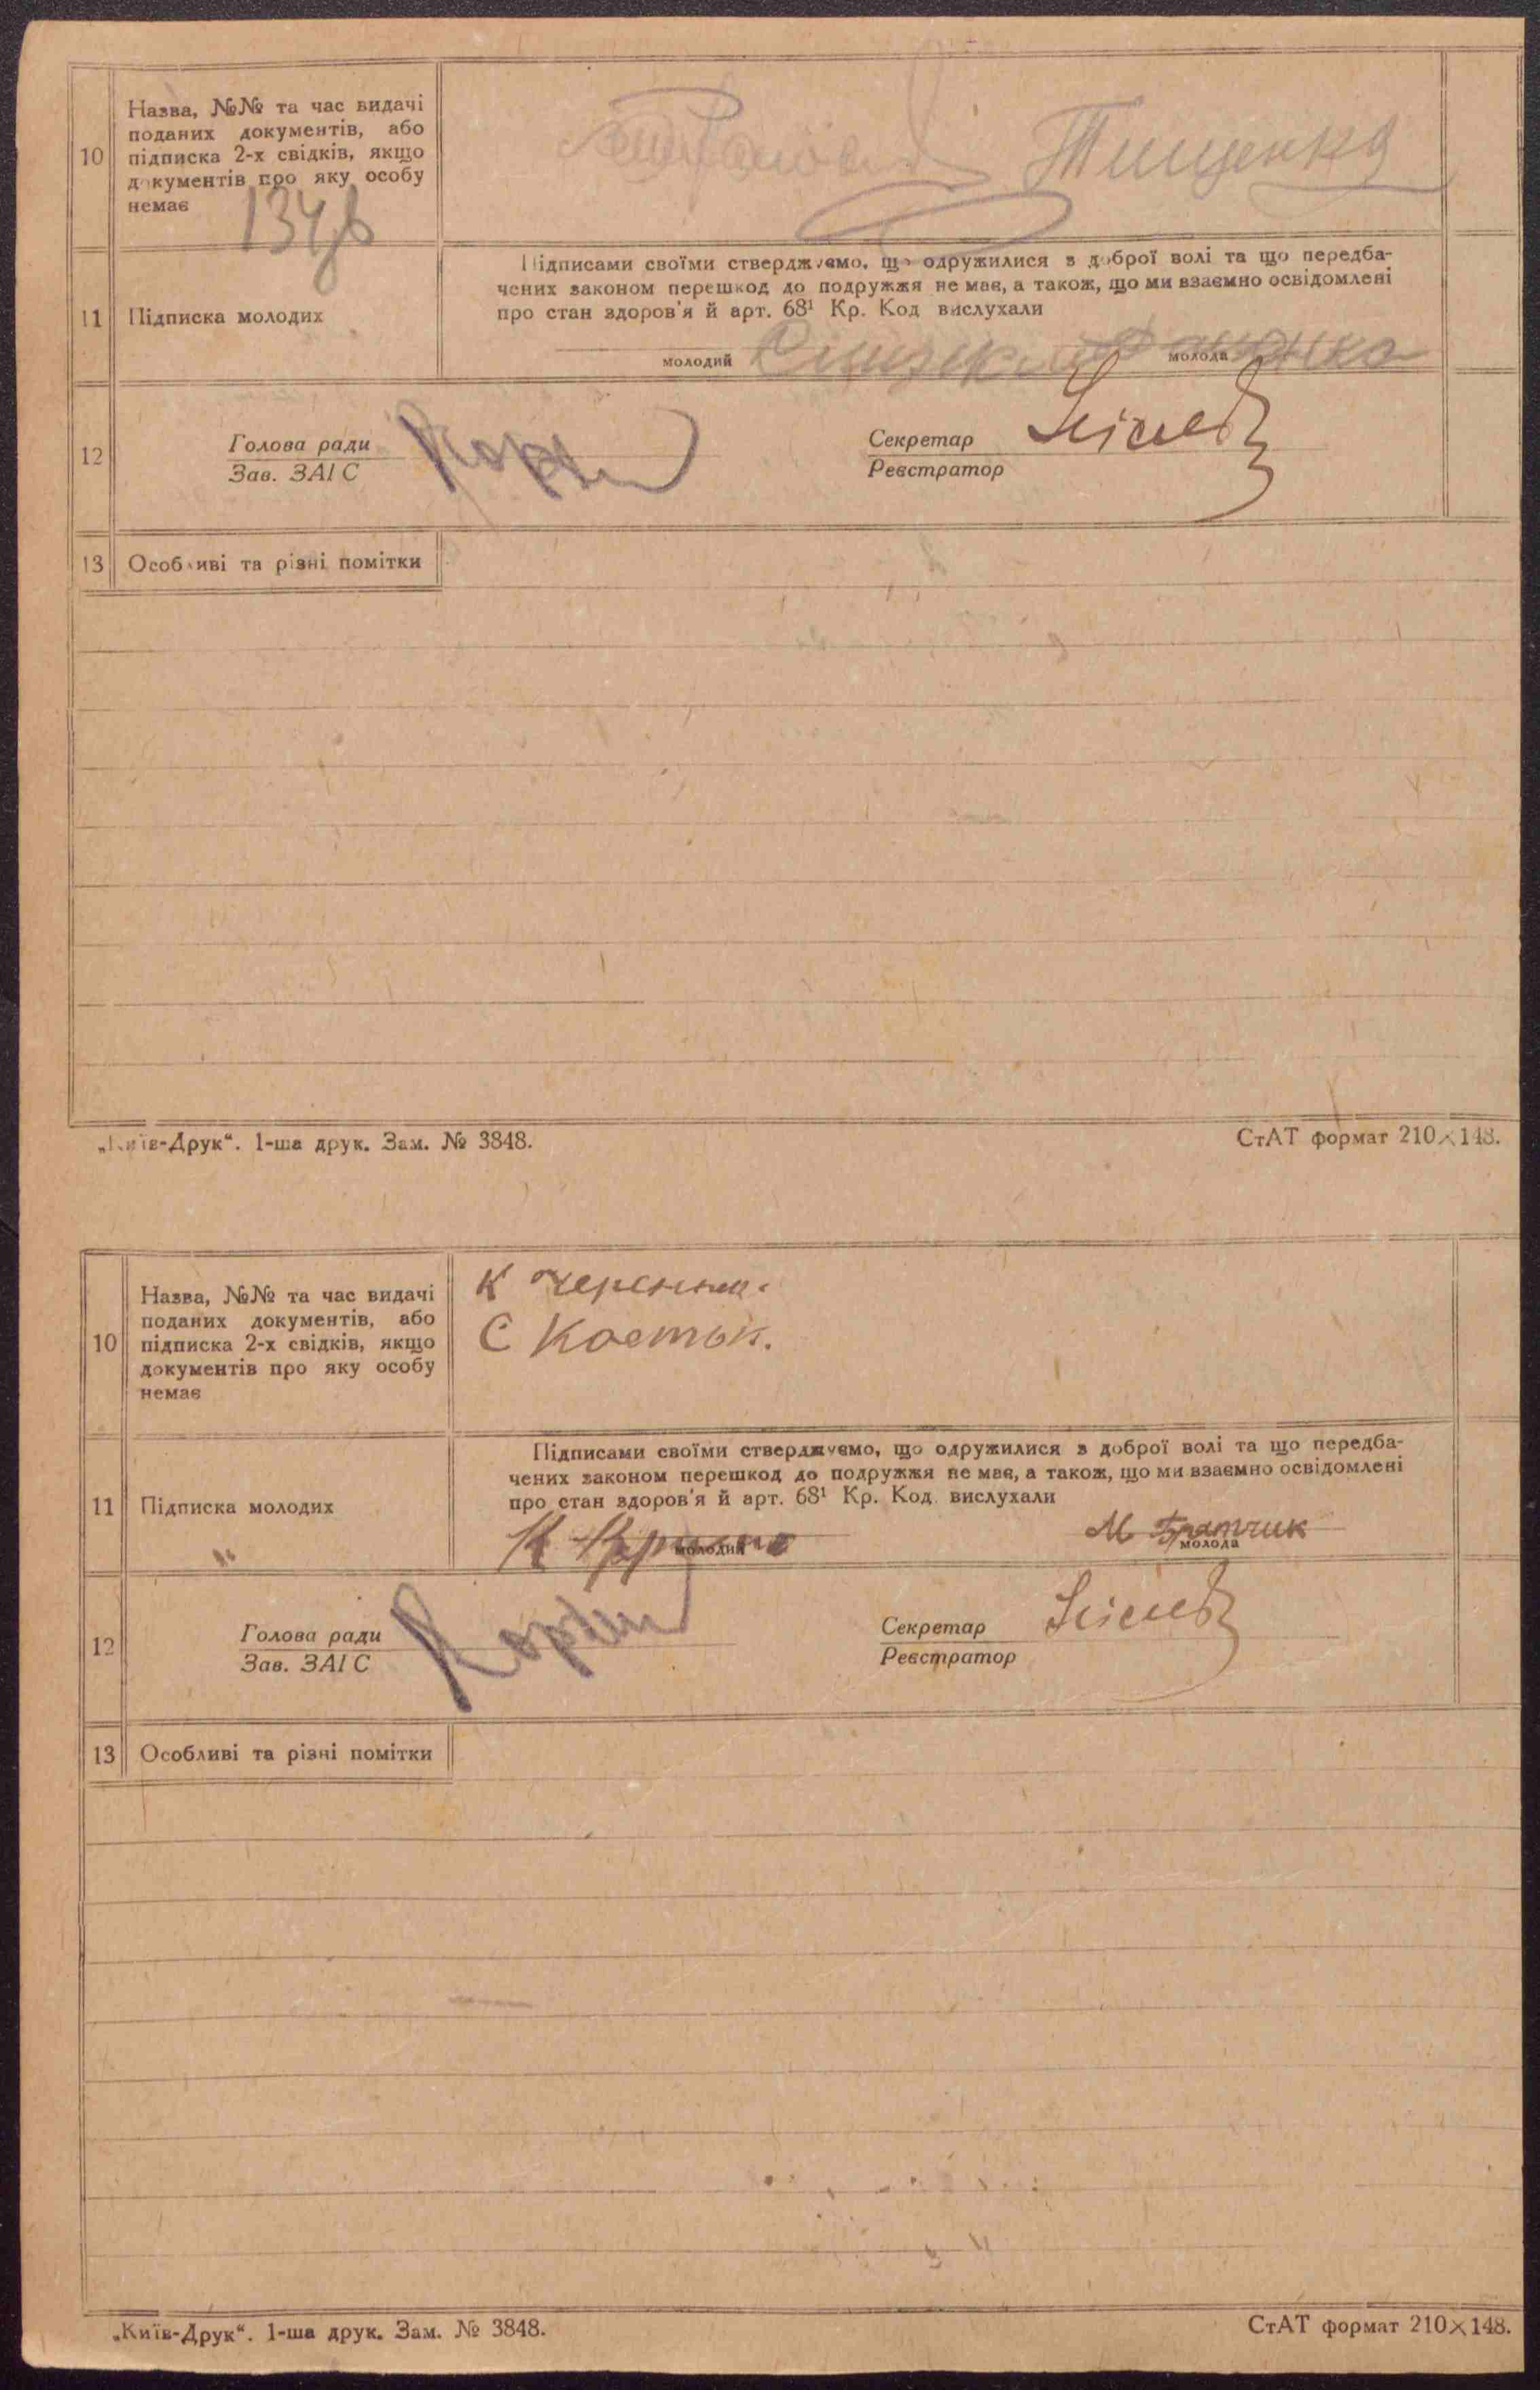 10 Назва, №№ та час видачі
поданих документів, або
підписка 2-х свідків, якщо
документів про яку особу
немає
Тищенко
Підписами своїми стверджуємо, що одружилися з доброї волі та що передба-
чених законом перешкод до подружжя не має, а також, що ми взаємно освідомлені
про стан здоров'я й арт. 68¹ Кр. Код вислухали
11 Підписка молодих
молодий молода
12 Голова ради
Зав. ЗАГС
Секретар
Реєстратор
13 Особливі та різні помітки
„Київ-Друк“. 1-ша друк. Зам. № 3848. СтАТ формат 210×148.
10 Назва, №№ та час видачі
поданих документів, або
підписка 2-х свідків, якщо
документів про яку особу
немає
К
С Костюк.
Підписами своїми стверджуємо, що одружилися з доброї волі та що передба-
чених законом перешкод до подружжя не має, а також, що ми взаємно освідомлені
про стан здоров'я й арт. 68¹ Кр. Код вислухали
11 Підписка молодих
М Братчик
молодий молода
12 Голова ради
Зав. ЗАГС
Секретар
Реєстратор
13 Особливі та різні помітки
„Київ-Друк“. 1-ша друк. Зам. № 3848. СтАТ формат 210×148.